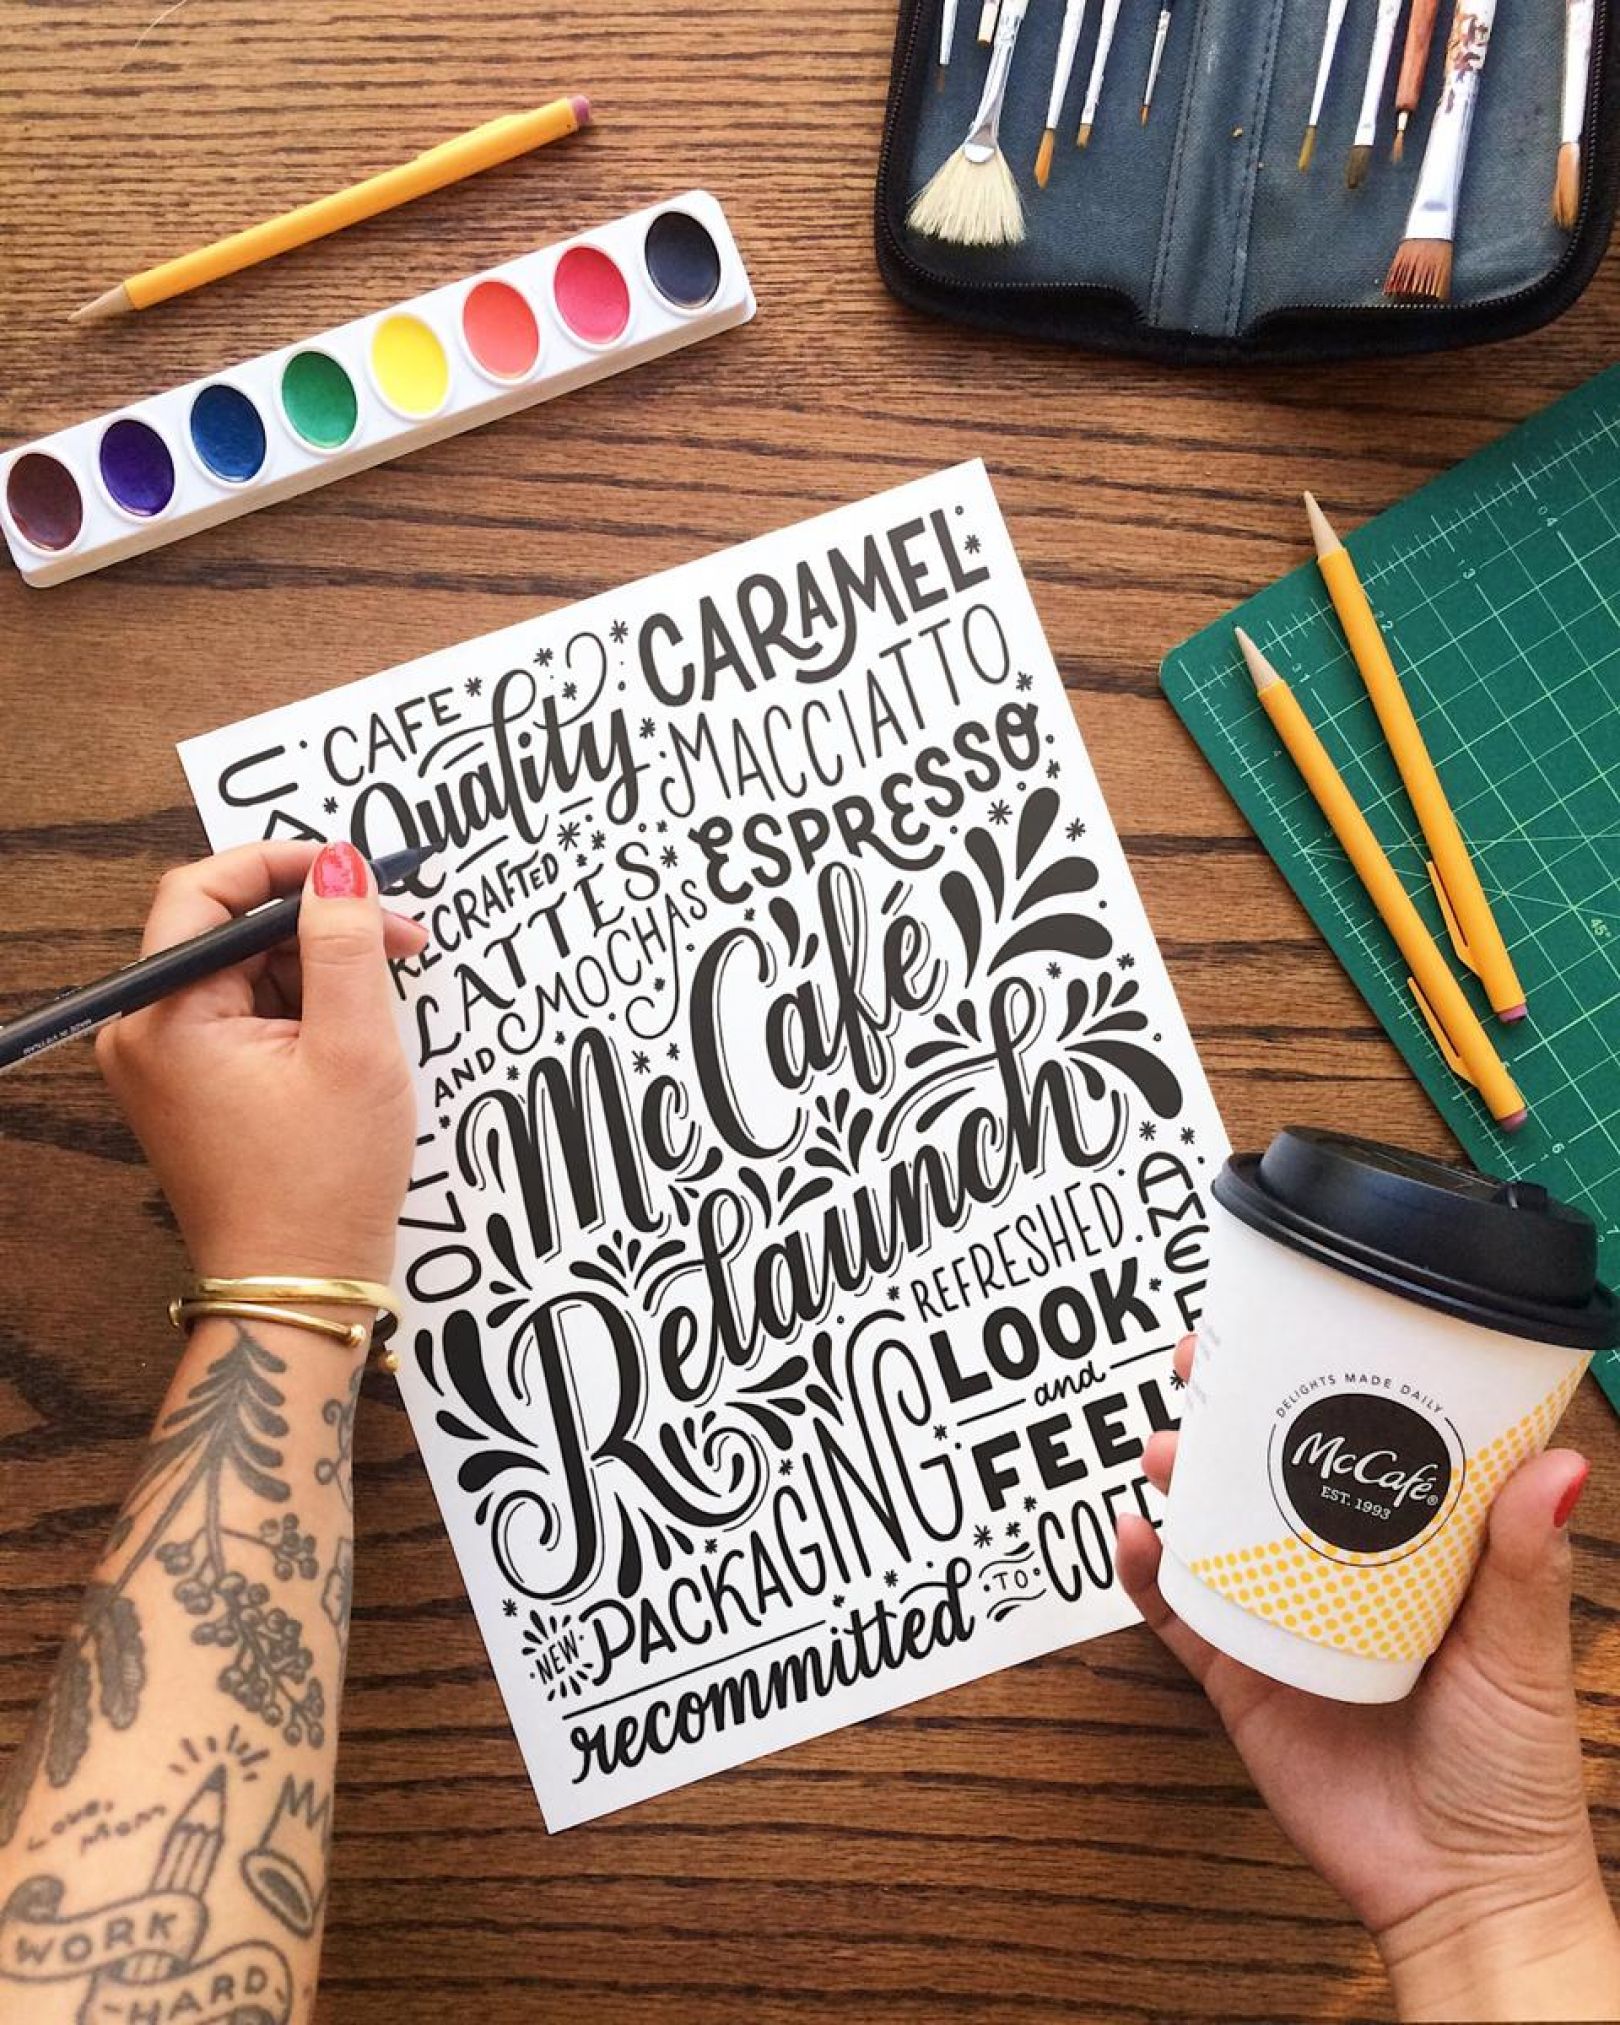 CARAMEL
CAFE
Quality
MACCIATTO
ESPRESSO
RECRAFTED
LATTES
AND MOCHAS
McCafé
Relaunch
REFRESHED
LOOK
and
FEEL
NEW PACKAGING
recommitted TO
DELIGHTS MADE DAILY
McCafé®
EST. 1993
Love, Mom
WORK
HARD